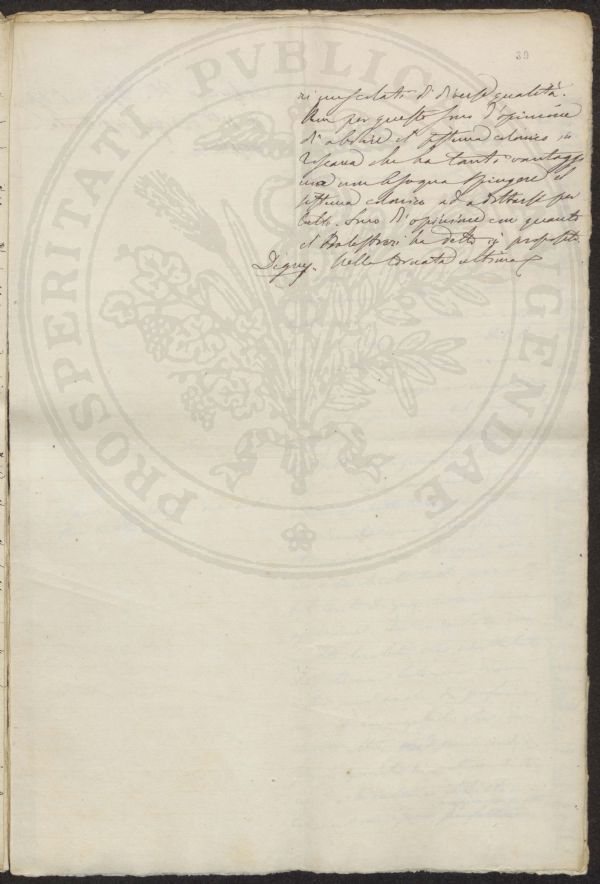 39
ri mescolati di diverse qualità.
Non per questo sono d'opinione
di abolire il sistema colonico in
Toscana che ha tanti vantaggi
ma non bisogna spingere il
sistema colonico ad adottarsi per
tutto. Sono d'opinione con quanto
il ha detto in proposito
Digny. Nella tornata ultima
PROSPERITATI PVBLICAE AVGENDAE